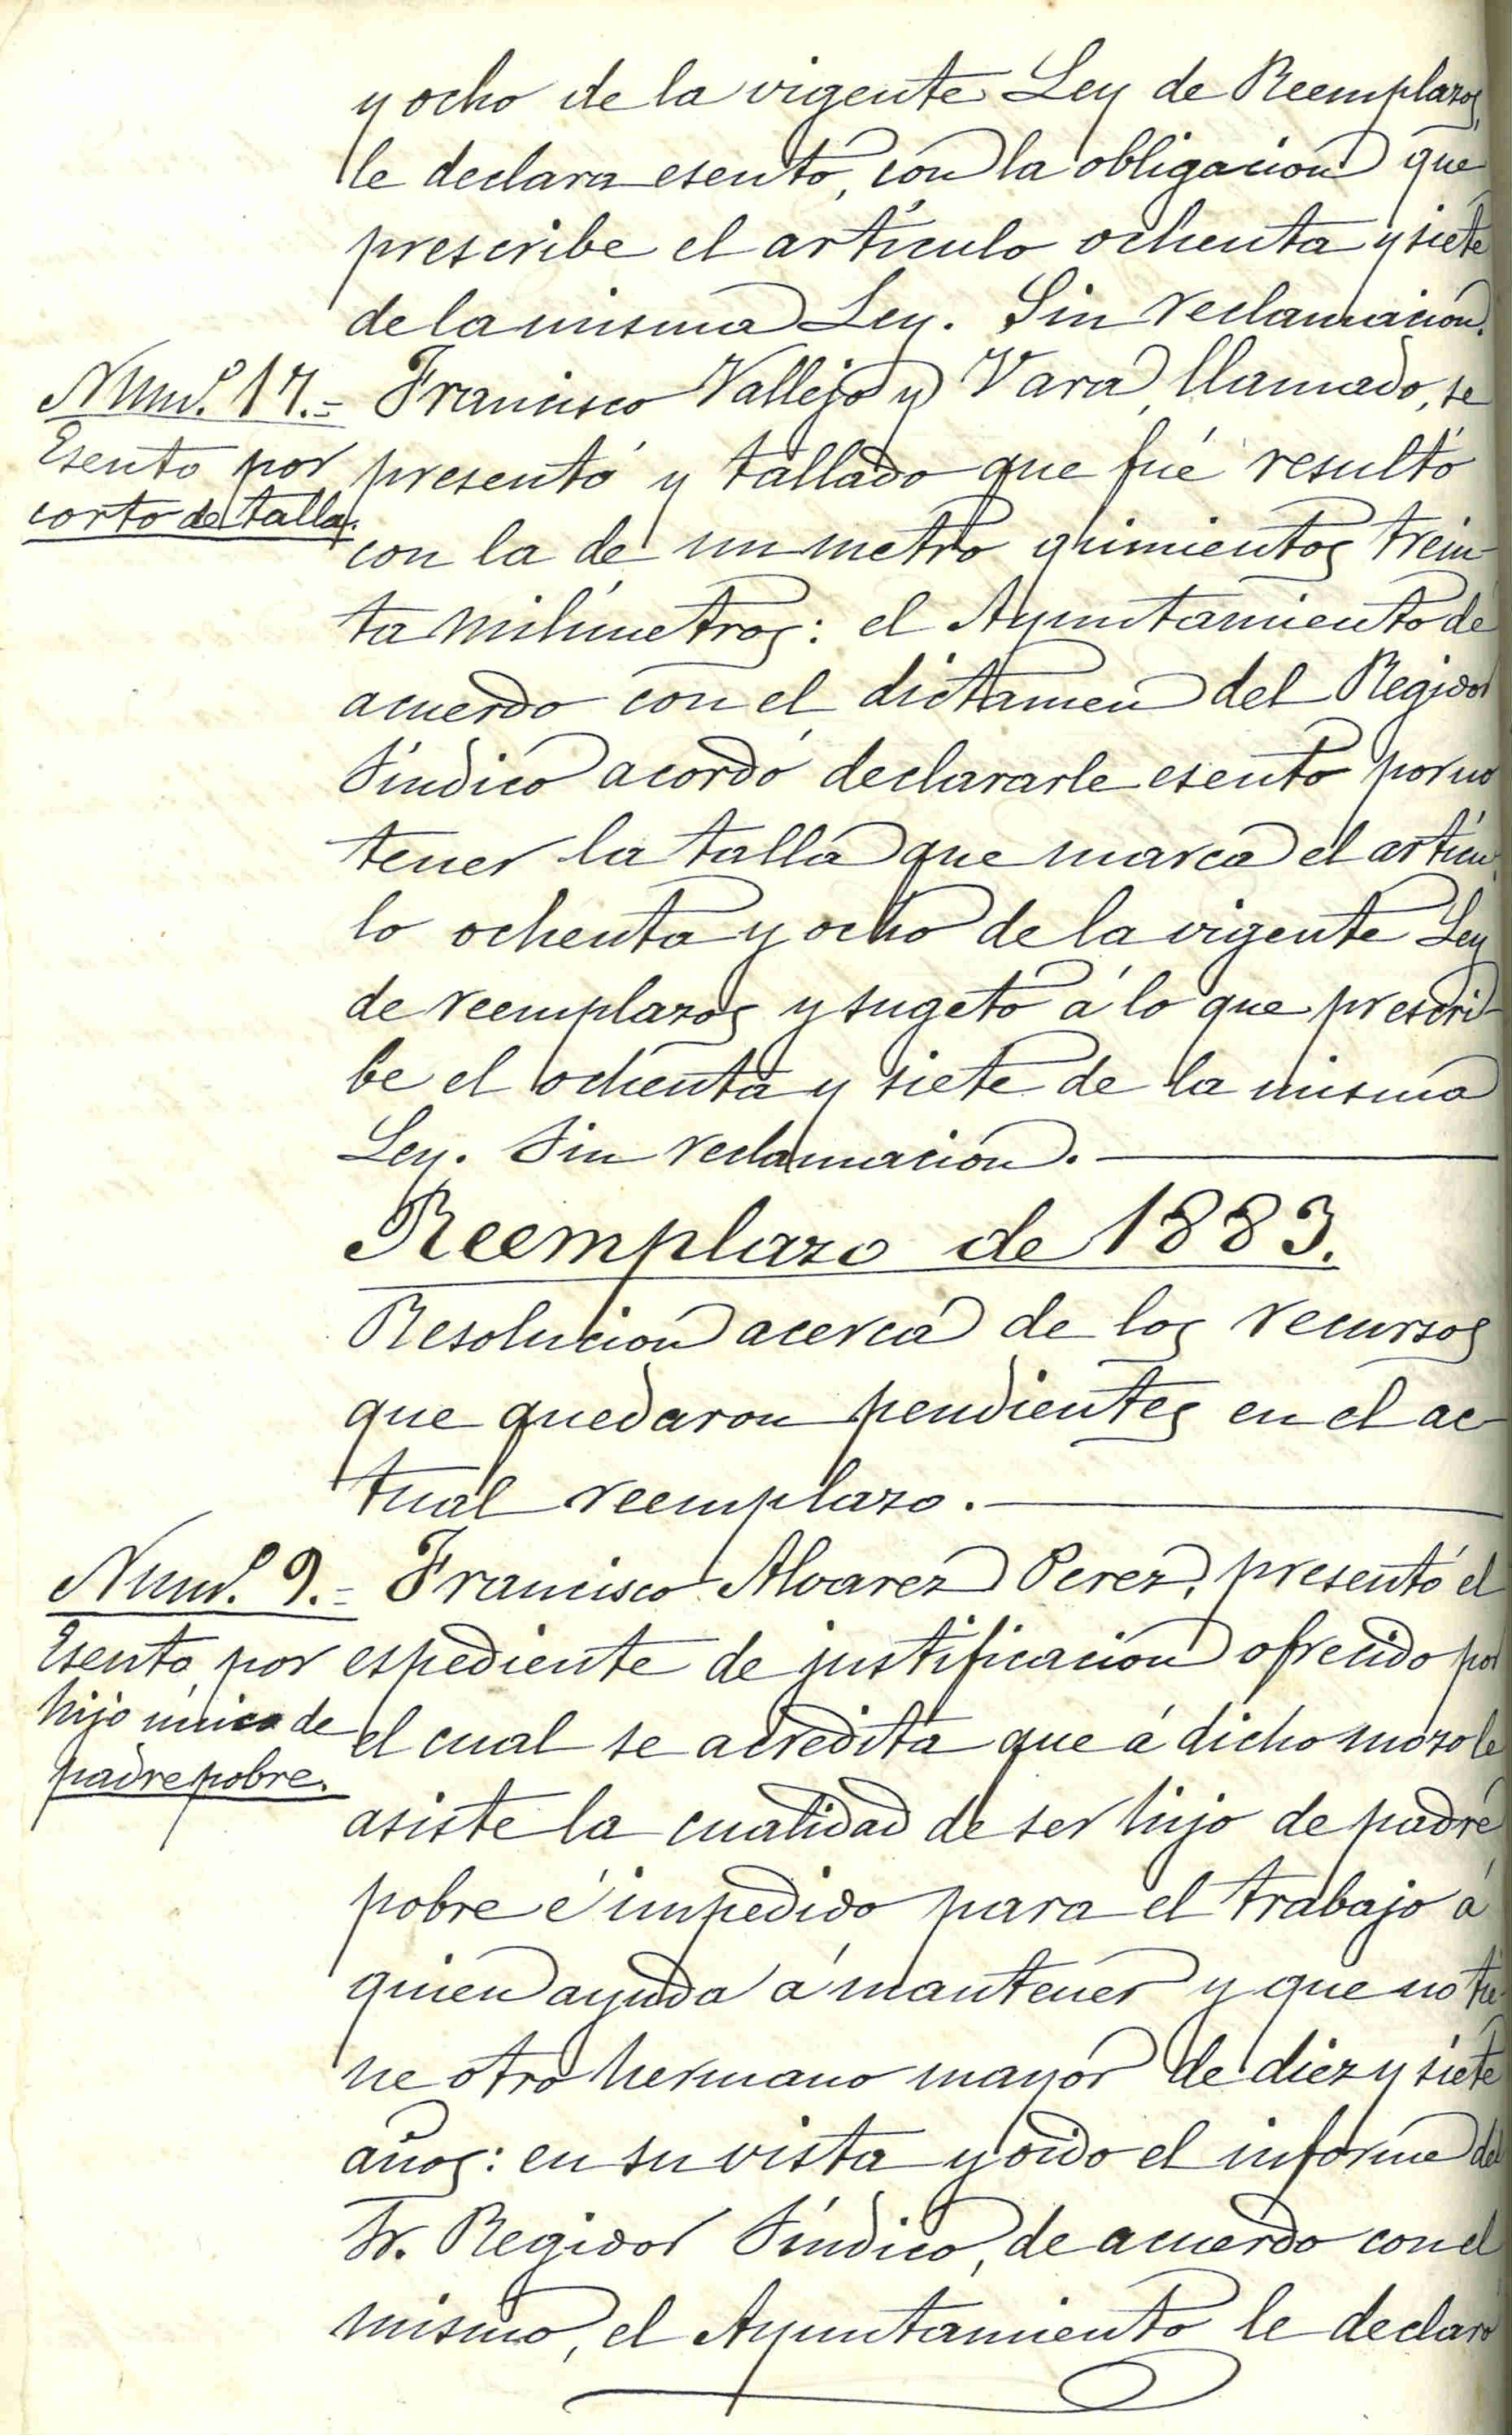 y ocho de la vigente Ley de Reemplazos,
le declara esento, con la obligacion que
prescribe el artículo ochenta y siete
de la misma Ley. Sin reclamacion.
Numº. 17.=
Esento por
corto de talla.
Francisco Vallejo y Vara, llamado, se
presentó y tallado que fué resultó
con la de un metro quinientos trein-
ta milímetros: el Ayuntamiento de
acuerdo con el dictamen del Regidor
Síndico acordó declararle esento por no
tener la talla que marca el artícu-
lo ochenta y ocho de la vigente Ley
de reemplazos y sugeto á lo que prescri-
be el ochenta y siete de la misma
Ley. Sin reclamacion.
Reemplazo de 1883.
Resolucion acerca de los recursos
que quedaron pendientes en el ac-
tual reemplazo.
Numº. 9.=
Esento por
hijo único de
padre pobre.
Francisco Alvarez Perez, presentó el
espediente de justificacion ofrecido por
el cual se acredita que á dicho mozo le
asiste la cualidad de ser hijo de padre
pobre é impedido para el trabajo á
quien ayuda á mantener y que no tie-
ne otro hermano mayor de diez y siete
años: en su vista y oido el informe del
Sr. Regidor Síndico, de acuerdo con el
mismo, el Ayuntamiento le declaró